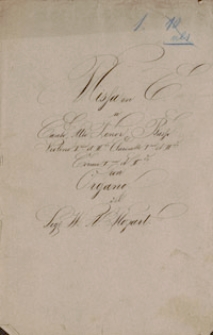 1.
Missa in E
a
Canto, Alto Tenore, Basso
Violino I mo et II do Clarinetto I mo et II do
Cornu I mo et II do
con
Organo
Sig. W. A. Mozart